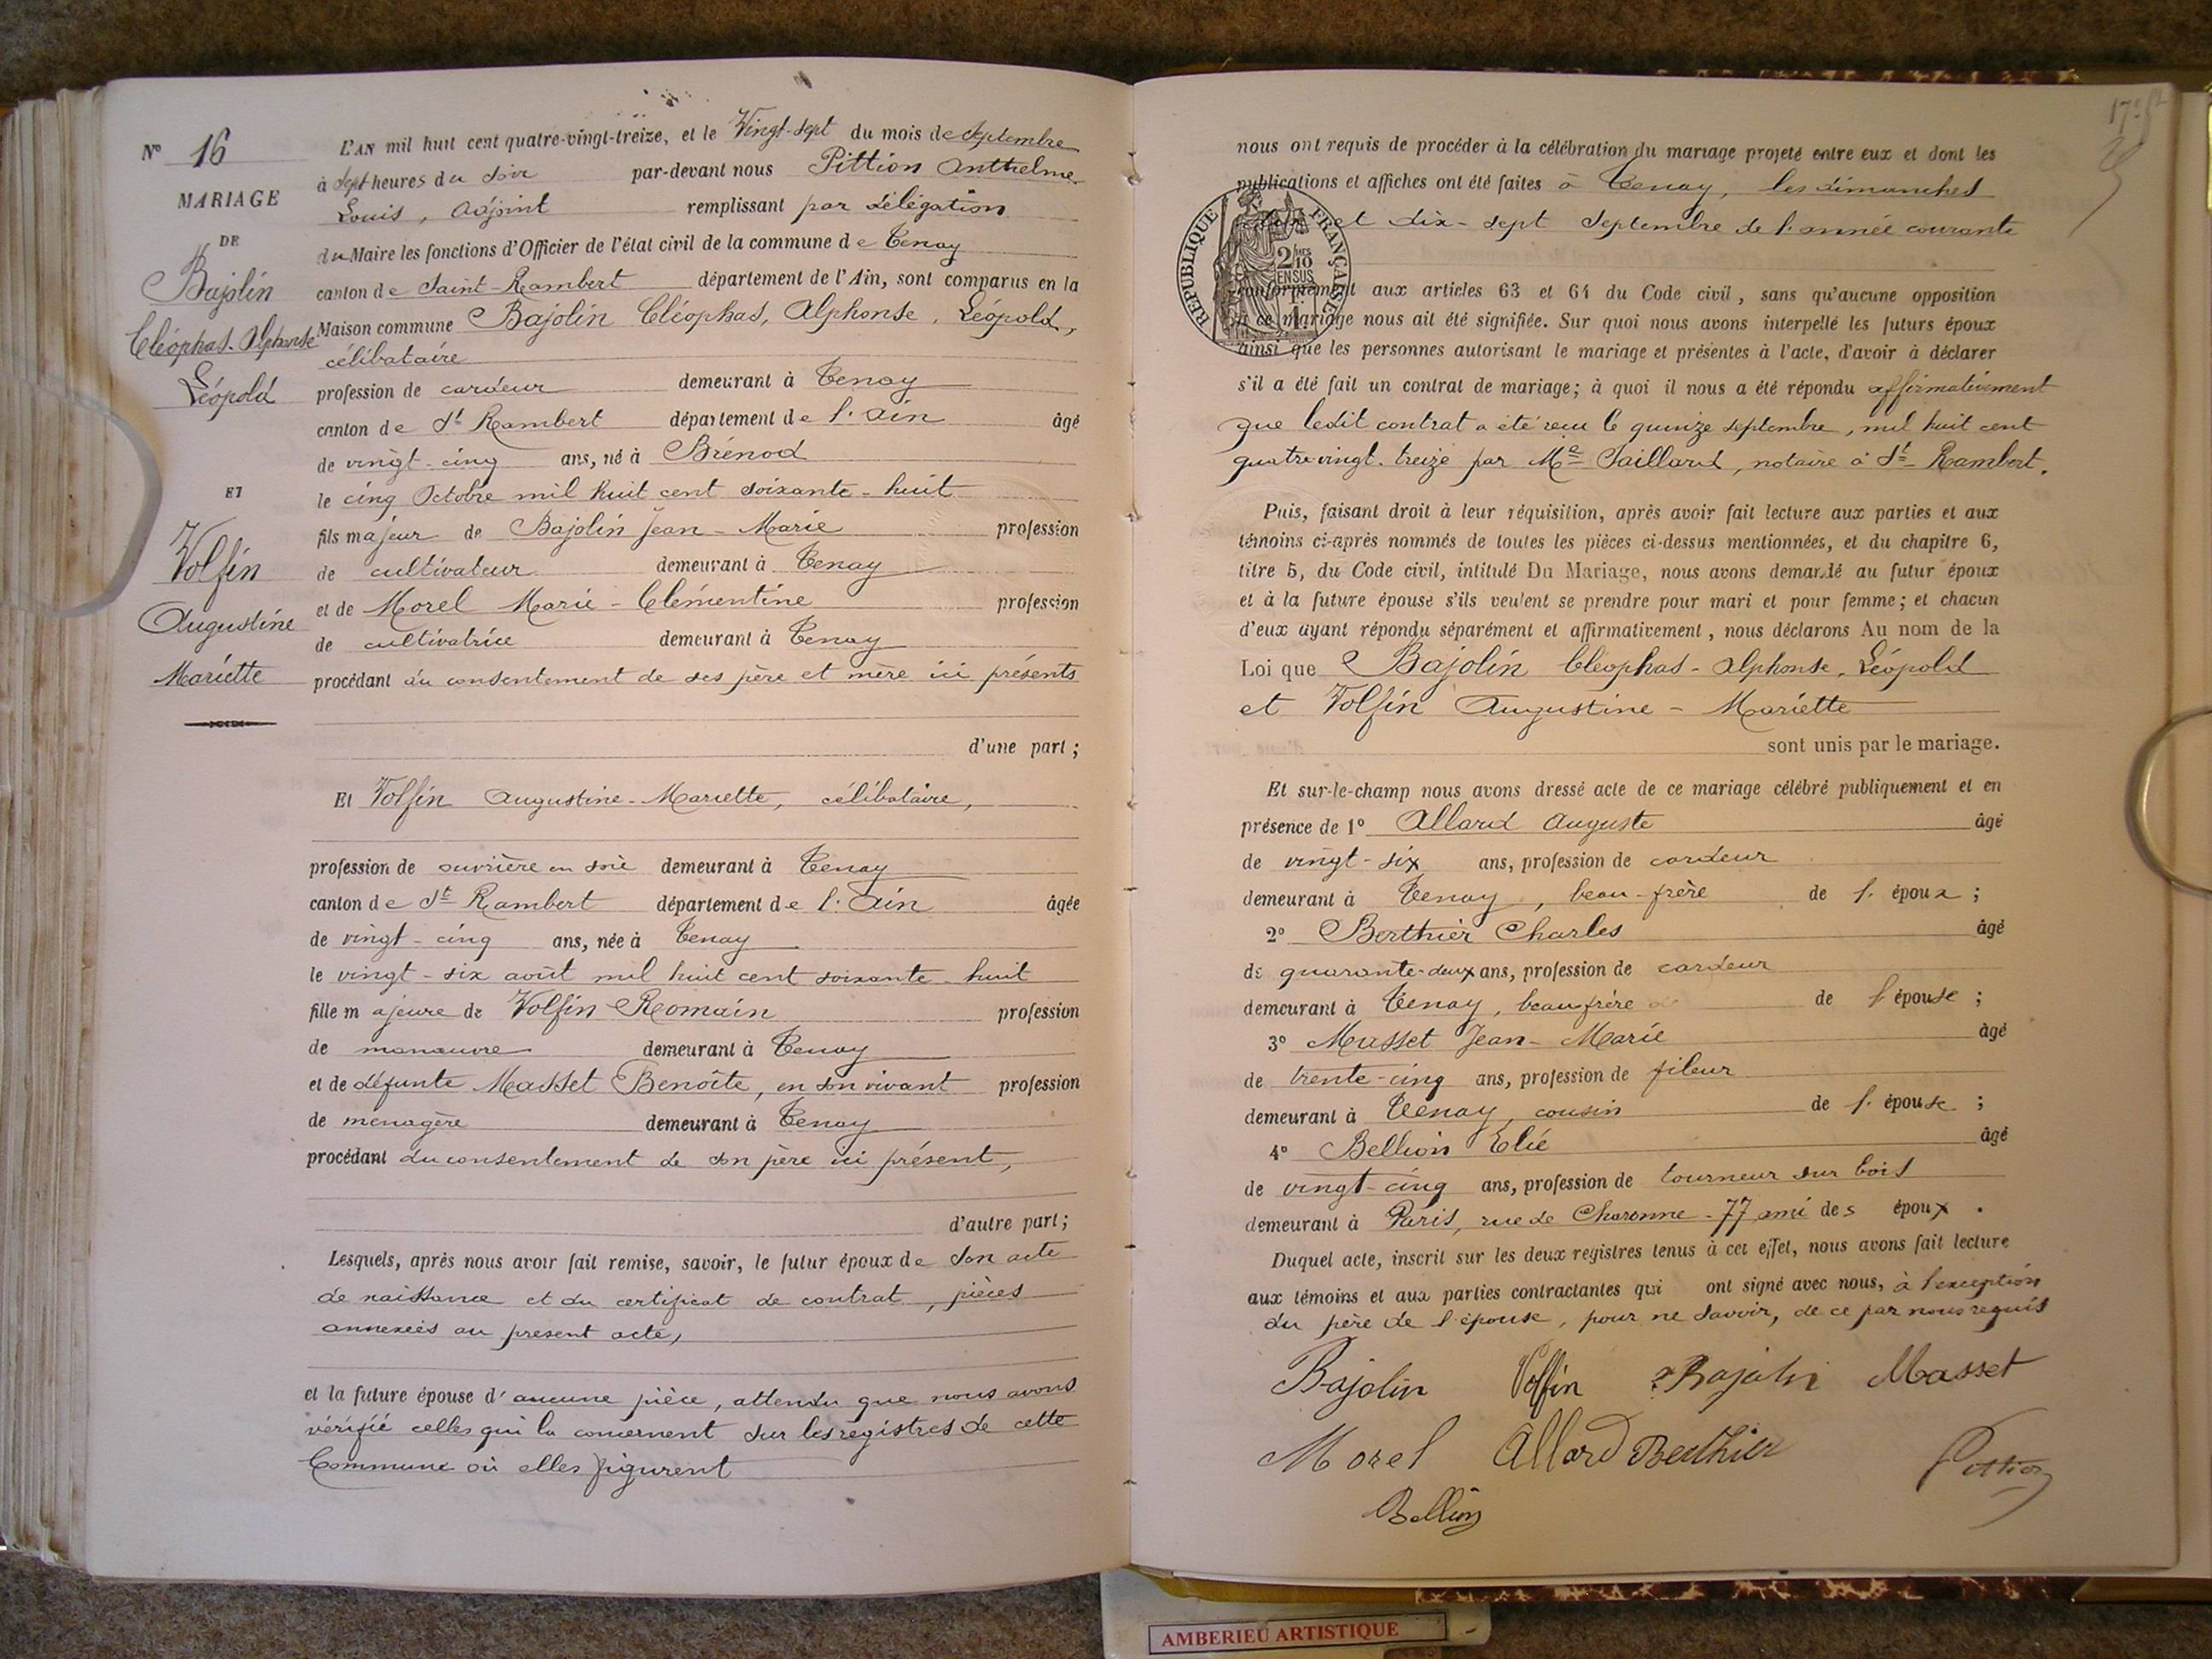 Nº 16
MARIAGE
DE
Bajolin
Cléophas-Alphonse
Léopold
ET
Volfin
Augustine
Mariette
L'AN mil huit cent quatre-vingt-treize, et le Vingt-sept du mois de Septembre
à Sept heures du soir par-devant nous Pittion Anthelme
Louis, Adjoint remplissant par délégation
du Maire les fonctions d'Officier de l'état civil de la commune de Tenay
canton de Saint-Rambert département de l'Ain, sont comparus en la
Maison commune Bajolin Cléophas, Alphonse, Léopold,
célibataire
profession de cardeur demeurant à Tenay
canton de St Rambert département de l'Ain âgé
de vingt-cinq ans, né à Brénod
le cinq Octobre mil huit cent soixante-huit
fils majeur de Bajolin Jean-Marie profession
de cultivateur demeurant à Tenay
et de Morel Marie-Clémentine profession
de cultivatrice demeurant à Tenay
procédant du consentement de ses père et mère ici présents
d'une part ;
Et Volfin Augustine-Mariette, célibataire,
profession de ouvrière en soie demeurant à Tenay
canton de St Rambert département de l'Ain âgée
de vingt-cinq ans, née à Tenay
le vingt-six août mil huit cent soixante-huit
fille majeure de Volfin Romain profession
de manœuvre demeurant à Tenay
et de défunte Masset Benoîte, en son vivant profession
de ménagère demeurant à Tenay
procédant du consentement de son père ici présent,
d'autre part ;
Lesquels, après nous avoir fait remise, savoir, le futur époux de son acte
de naissance et du certificat de contrat, pièces
annexées au présent acte,
et la future épouse d'aucune pièce, attendu que nous avons
vérifié celles qui la concernent sur les registres de cette
Commune où elles figurent
nous ont requis de procéder à la célébration du mariage projeté entre eux et dont les
publications et affiches ont été faites à Tenay, les dimanches
et dix-sept Septembre de l'année courante
RÉPUBLIQUE FRANÇAISE
2/10 EN SUS
conformément aux articles 63 et 64 du Code civil, sans qu'aucune opposition
à ce mariage nous ait été signifiée. Sur quoi nous avons interpellé les futurs époux
ainsi que les personnes autorisant le mariage et présentes à l'acte, d'avoir à déclarer
s'il a été fait un contrat de mariage ; à quoi il nous a été répondu affirmativement
que ledit contrat a été reçu le quinze septembre, mil huit cent
quatre vingt-treize par Me Saillard, notaire à St-Rambert.
Puis, faisant droit à leur réquisition, après avoir fait lecture aux parties et aux
témoins ci-après nommés de toutes les pièces ci-dessus mentionnées, et du chapitre 6,
titre 5, du Code civil, intitulé Du Mariage, nous avons demandé au futur époux
et à la future épouse s'ils veulent se prendre pour mari et pour femme ; et chacun
d'eux ayant répondu séparément et affirmativement, nous déclarons Au nom de la
Loi que Bajolin Cléophas-Alphonse, Léopold
et Volfin Augustine-Mariette
sont unis par le mariage.
Et sur-le-champ nous avons dressé acte de ce mariage célébré publiquement et en
présence de 1º Allard Auguste âgé
de vingt-six ans, profession de cardeur
demeurant à Tenay, beau-frère de l'époux ;
2º Berthier Charles âgé
de quarante-deux ans, profession de cardeur
demeurant à Tenay, beau frère de l'épouse ;
3º Masset Jean-Marie âgé
de trente-cinq ans, profession de fileur
demeurant à Tenay, cousin de l'épouse ;
4º Bellion Élie âgé
de vingt-cinq ans, profession de tourneur sur bois
demeurant à Paris, rue de Charonne-77 ami des époux.
Duquel acte, inscrit sur les deux registres tenus à cet effet, nous avons fait lecture
aux témoins et aux parties contractantes qui ont signé avec nous, à l'exception
du père de l'épouse, pour ne savoir, de ce par nous requis
Bajolin Volfin Bajolin Masset
Morel Allard Berthier Pittion
Bellion
AMBERIEU ARTISTIQUE